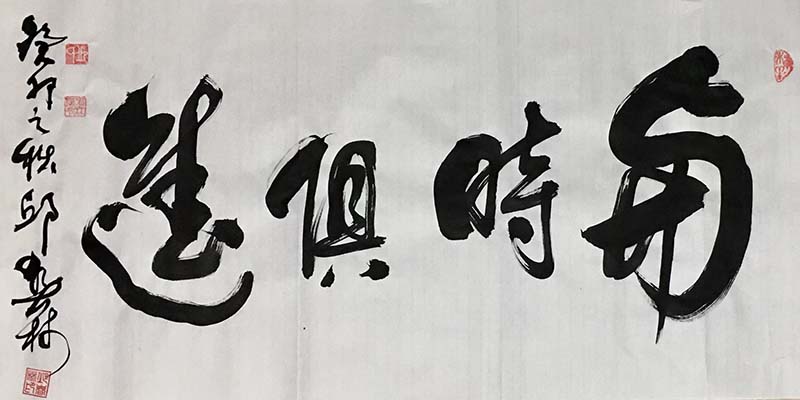 與時俱進
癸卯之秋邱